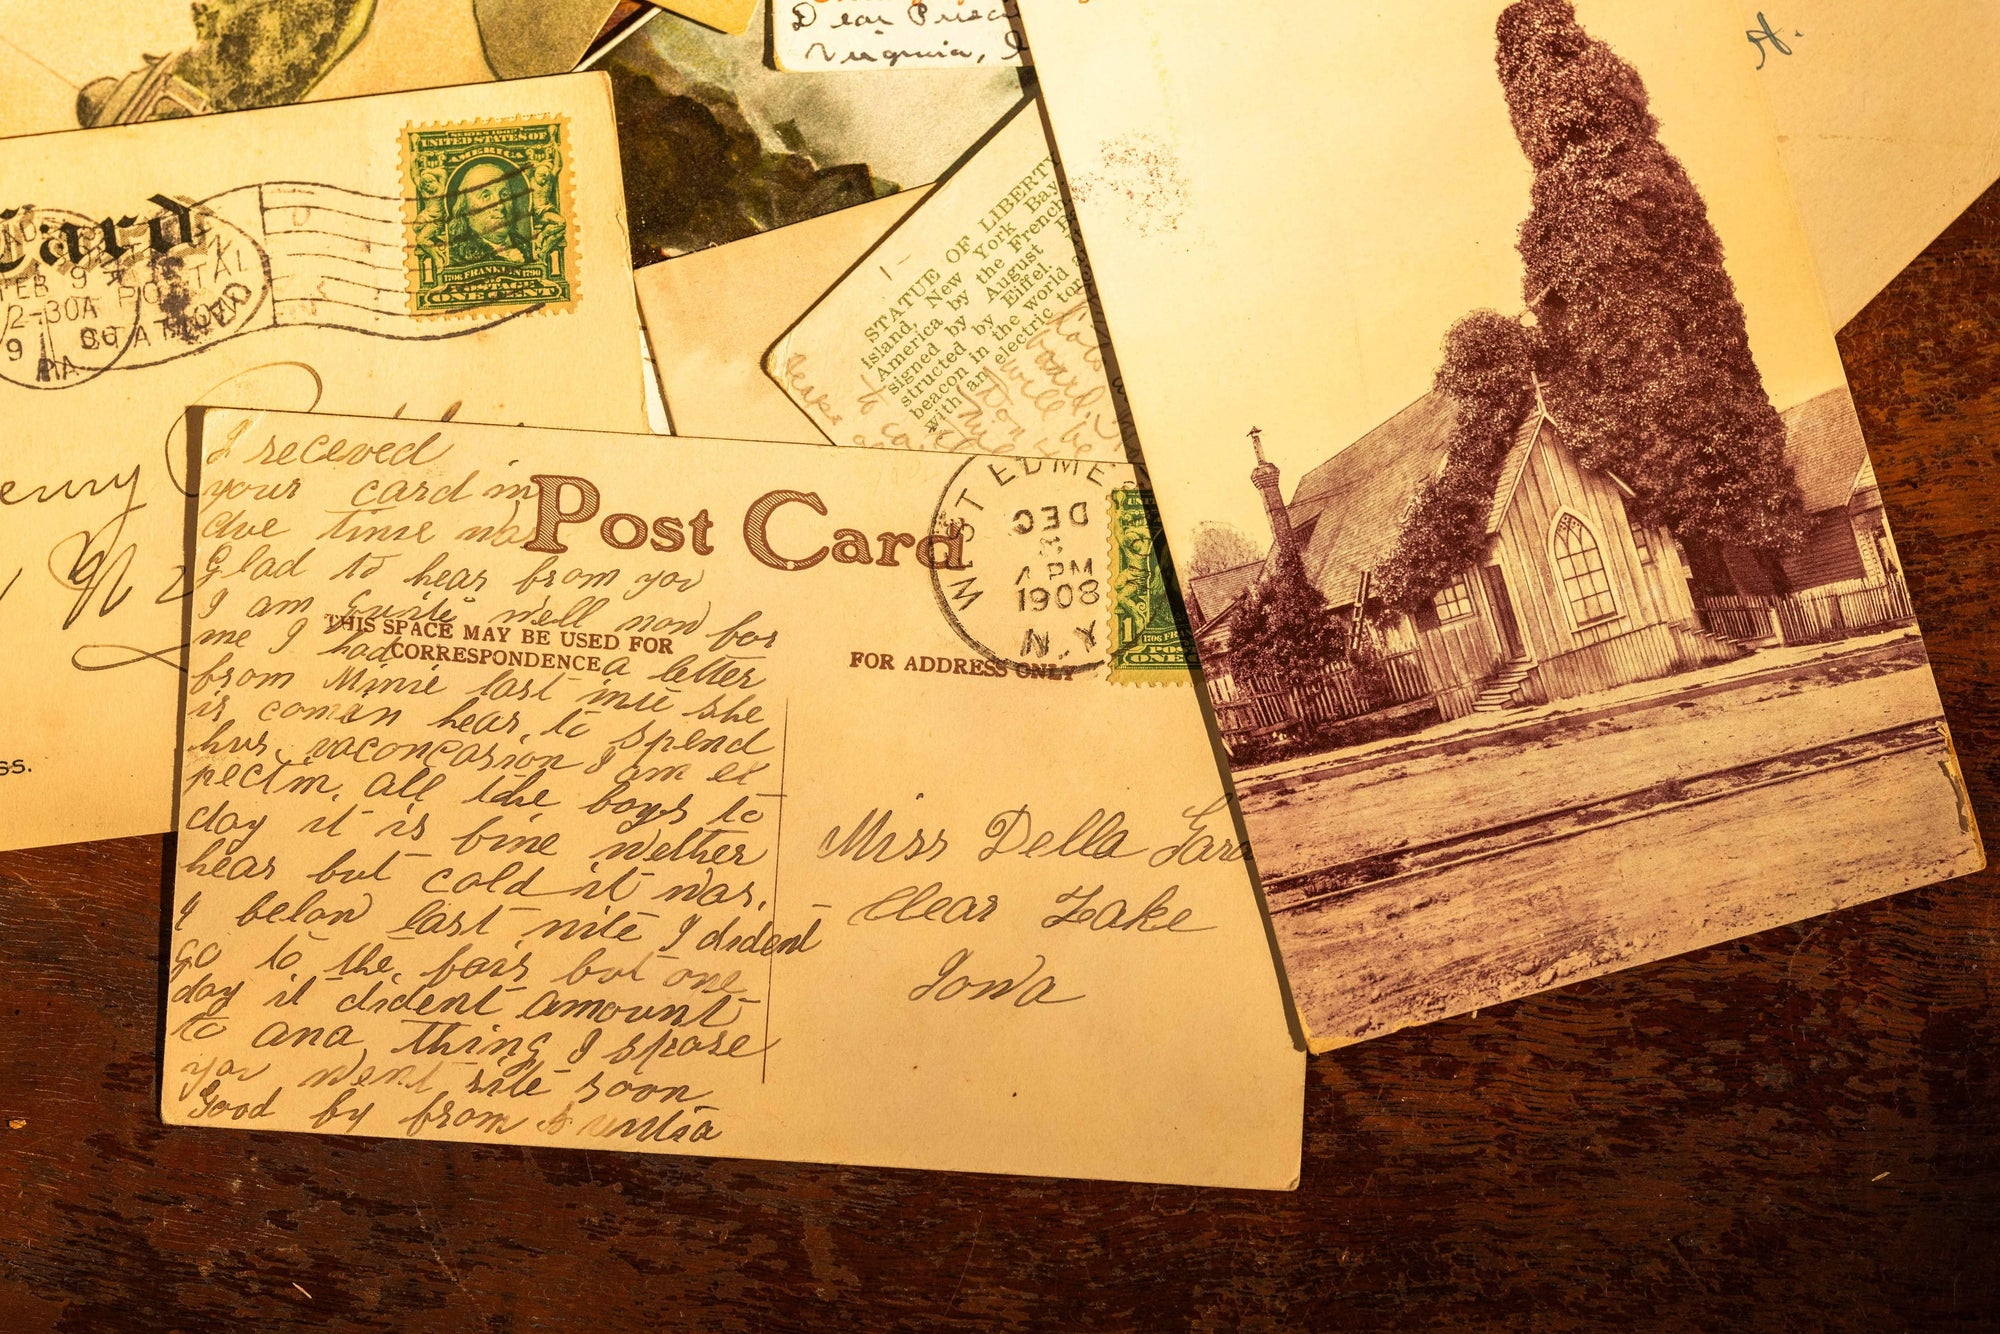 Dear
Virginia,
St.
Card
FEB 9
2-30A
9
PA.
SERIES 1902
UNITED STATES OF
AMERICA
1 1706 FRANKLIN 1790 1
POSTAGE
ONE CENT
STATUE OF LIBERTY
Island, New York Bay,
America by the French
signed by August
structed by Eiffel.
beacon in the world
with an electric
enry
N
ss.
Post Card
THIS SPACE MAY BE USED FOR
CORRESPONDENCE
FOR ADDRESS ONLY
WEST EDME
DEC
PM
1908
N.Y.
1
ONE
I receved
your card in
due time was
Glad to hear from you
I am quite well now for
me I had a letter
from Minie last nite she
is coman hear, to spend
hur vaconcasion I am ex
pectin, all the boys to
day it is fine wether
hear but cold it was.
4 below last nite I dident
go to the, fair but one
day it dident amount
to ana thing I spose
you went rite soon
Good by from
Miss Della
Clear Lake
Iowa